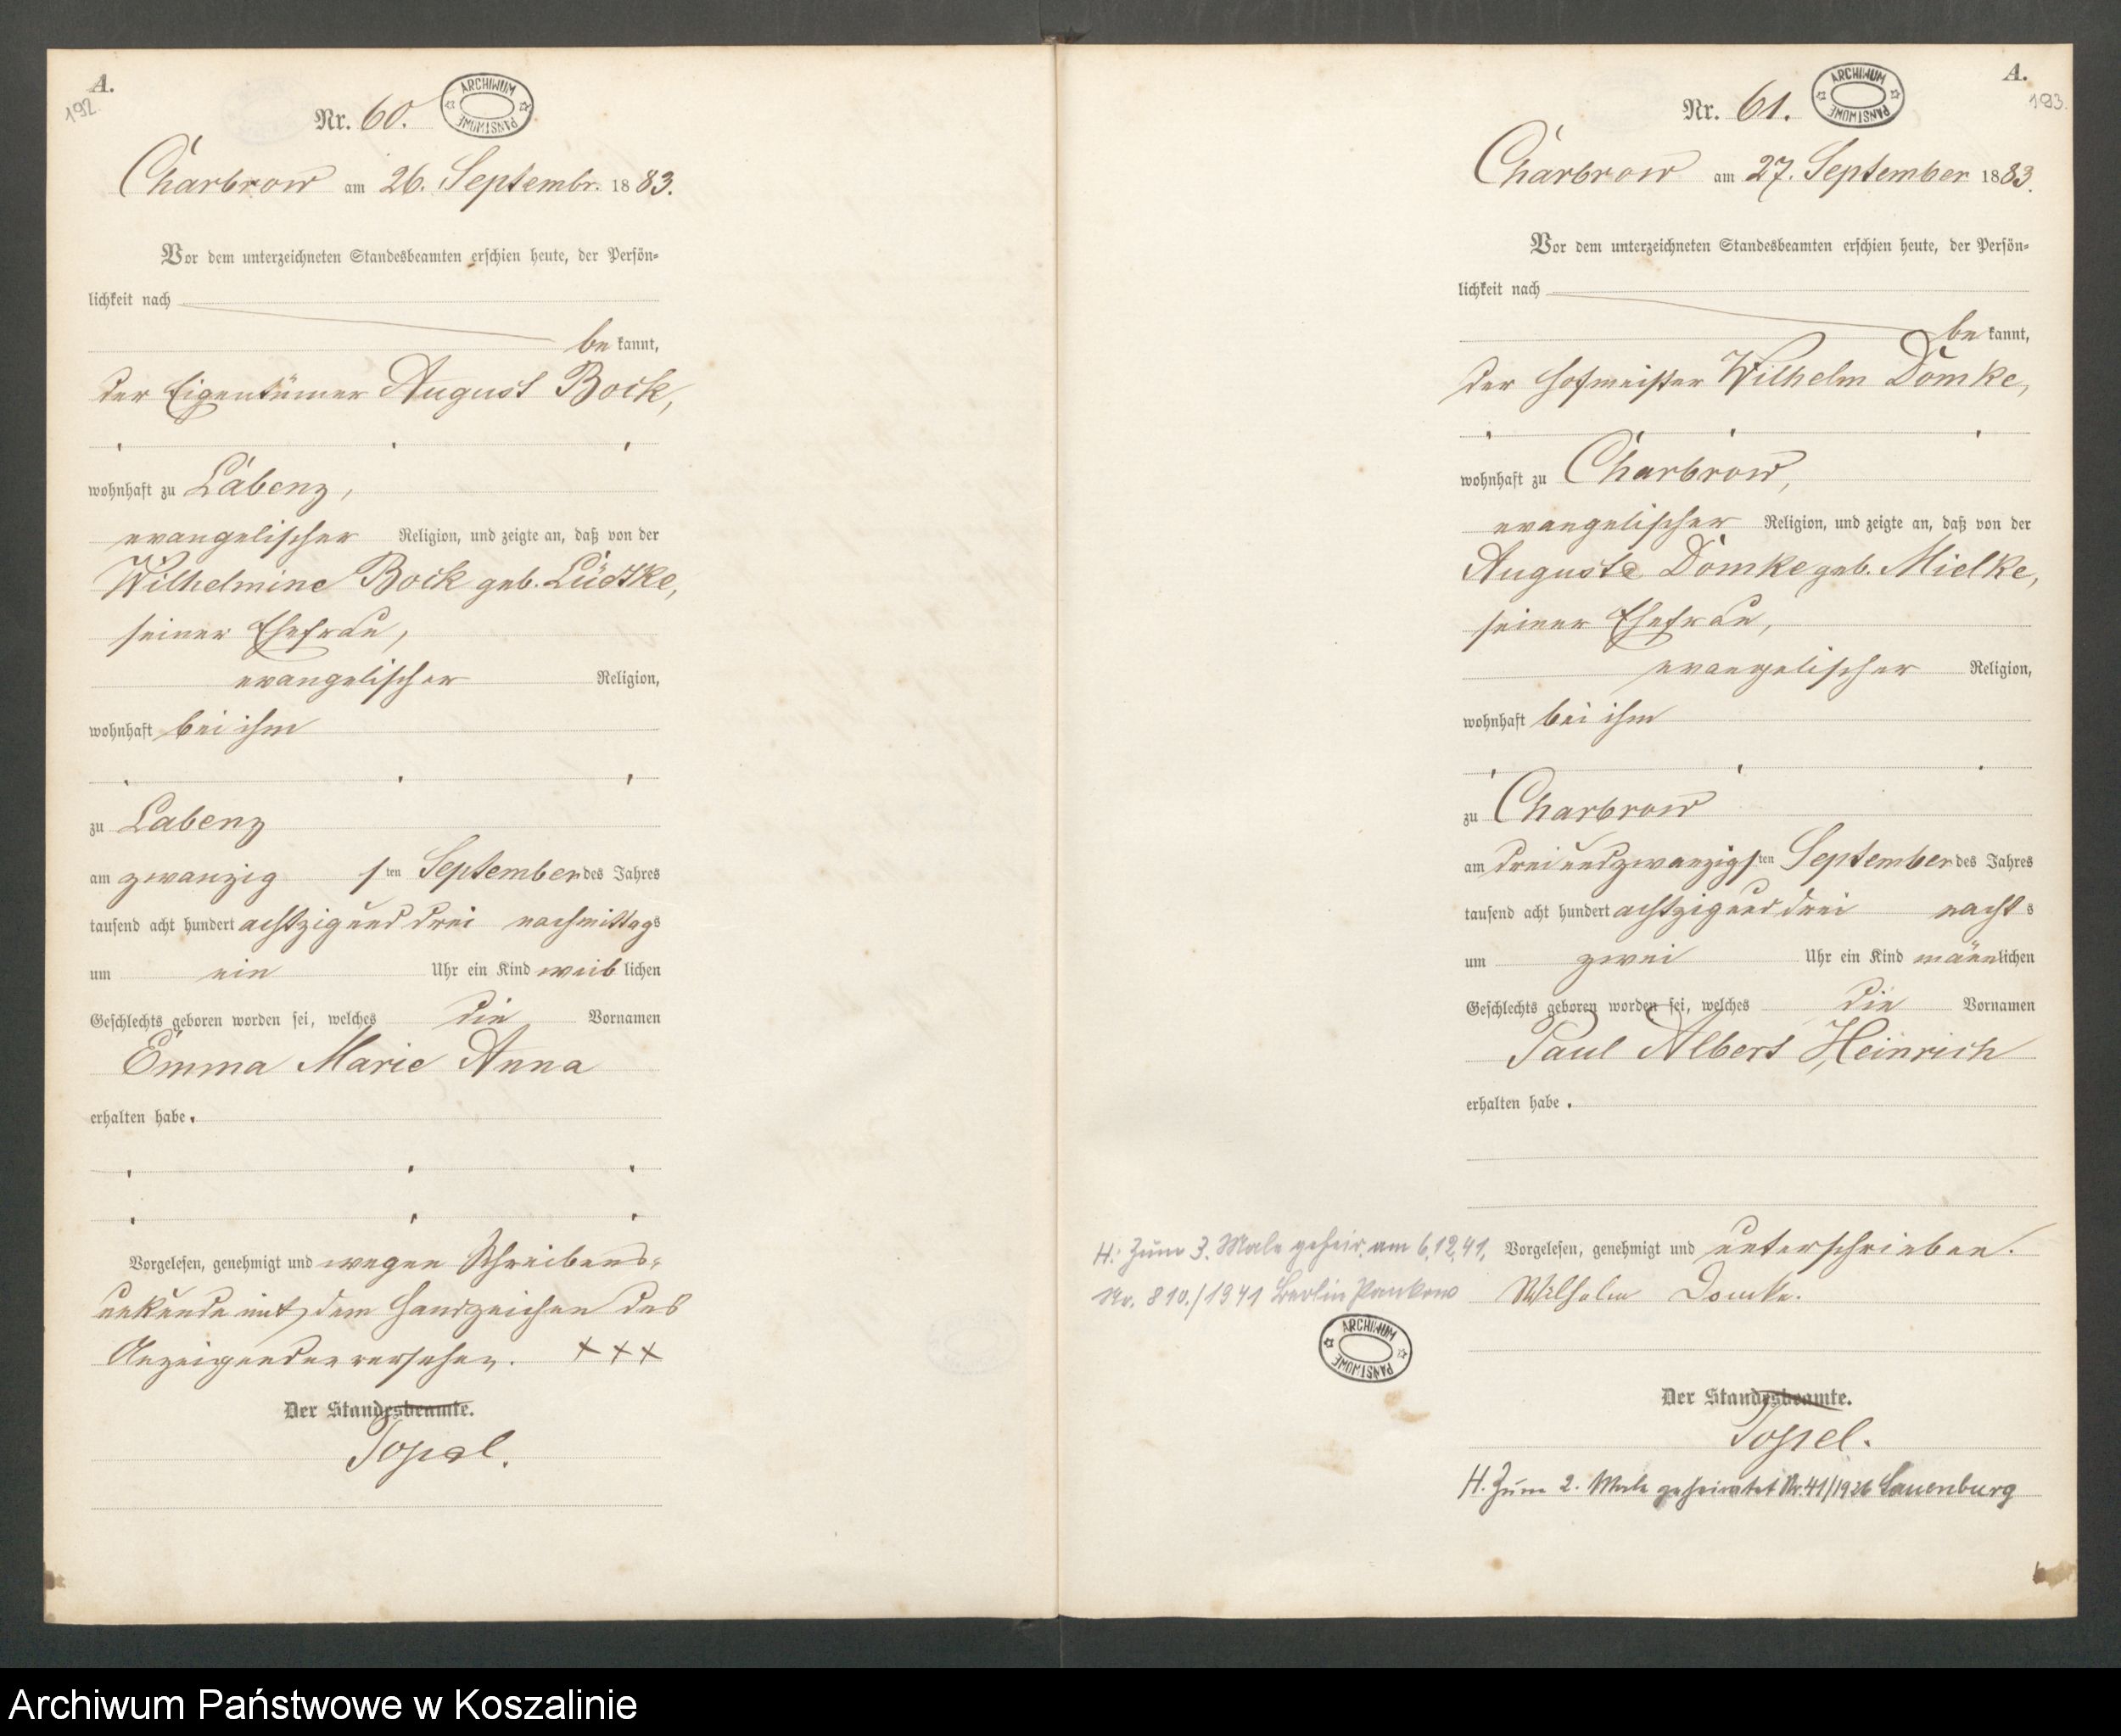 A.
192.
Nr. 60.
ARCHIWUM PAŃSTWOWE
Charbrow am 26. Septembr. 1883.
Vor dem unterzeichneten Standesbeamten erschien heute, der Persön-
lichkeit nach
bekannt,
der Eigentümer August Bock,
wohnhaft zu Labenz,
evangelischer Religion, und zeigte an, daß von der
Wilhelmine Bock geb. Lüdtke,
seiner Ehefrau,
evangelischer Religion,
wohnhaft bei ihm
zu Labenz
am zwanzigsten September des Jahres
tausend acht hundert achtzig und drei nachmittags
um ein Uhr ein Kind weiblichen
Geschlechts geboren worden sei, welches die Vornamen
Emma Marie Anna
erhalten habe.
Vorgelesen, genehmigt und wegen Schreibens-
unkunde mit dem Handzeichen des
Anzeigenden versehen. +++
Der Standesbeamte.
Topel.
A.
193.
Nr. 61.
ARCHIWUM PAŃSTWOWE
Charbrow am 27. September 1883.
Vor dem unterzeichneten Standesbeamten erschien heute, der Persön-
lichkeit nach
bekannt,
der Hofmeister Wilhelm Domke,
wohnhaft zu Charbrow,
evangelischer Religion, und zeigte an, daß von der
Auguste Domke geb. Mielke,
seiner Ehefrau,
evangelischer Religion,
wohnhaft bei ihm
zu Charbrow
am dreiundzwanzigsten September des Jahres
tausend acht hundert achtzig und drei nachts
um zwei Uhr ein Kind männlichen
Geschlechts geboren worden sei, welches die Vornamen
Paul Albert Heinrich
erhalten habe.
Vorgelesen, genehmigt und unterschrieben.
Wilhelm Domke.
Der Standesbeamte.
Topel.
H. Zum 2. Male geheiratet Nr. 41/1926 Lauenburg
H: Zum 3. Male geheir. am 6.12.41,
Nr. 810./1941 Berlin Pankow
ARCHIWUM PAŃSTWOWE
Archiwum Państwowe w Koszalinie